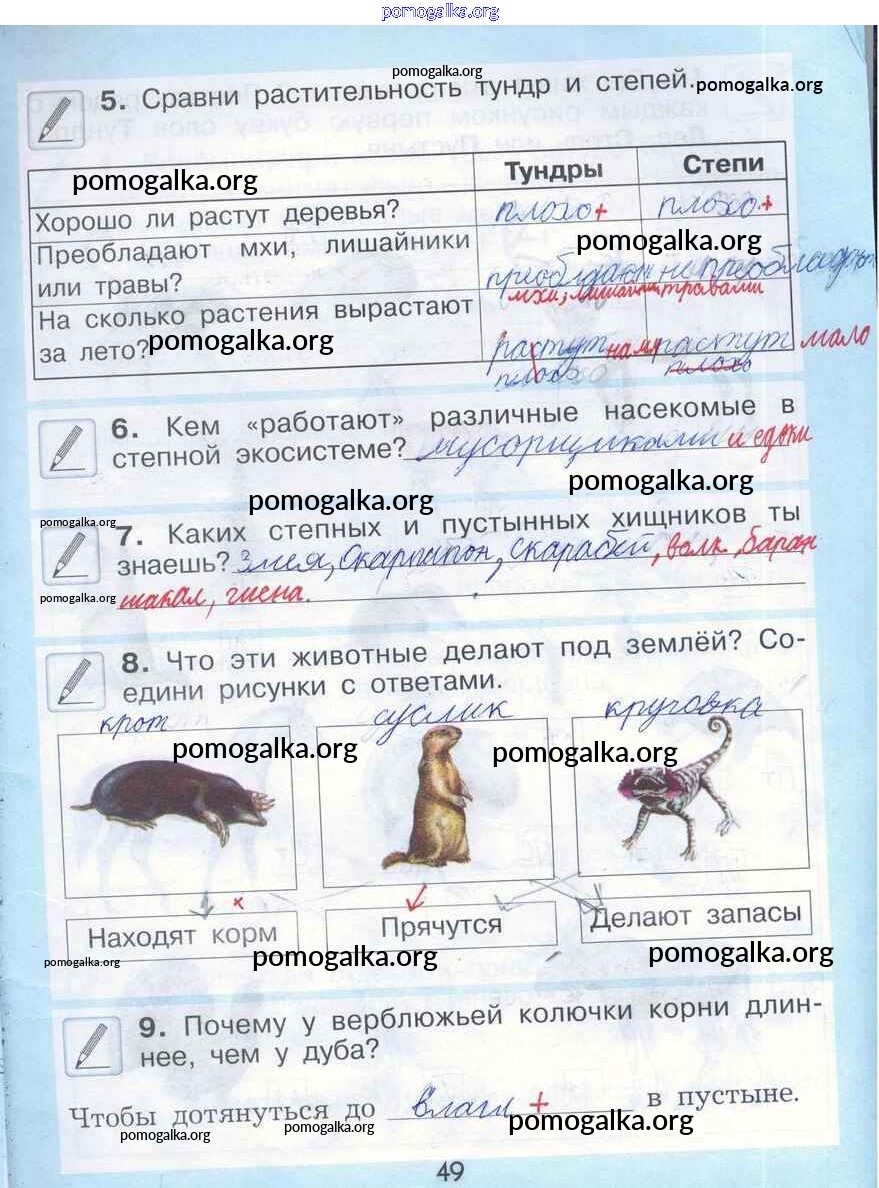 pomogalka.org
pomogalka.org
5. Сравни растительность тундр и степей.
pomogalka.org
Тундры Степи
pomogalka.org
Хорошо ли растут деревья? плохо + плохо. +
Преобладают мхи, лишайники
pomogalka.org
или травы?
мхи, травами
На сколько растения вырастают
за лето? растут растут мало
pomogalka.org
плохо плохо
6. Кем «работают» различные насекомые в
степной экосистеме? мусорщиками и едоки
pomogalka.org
pomogalka.org
pomogalka.org
7. Каких степных и пустынных хищников ты
знаешь? Змея, скарабей, волк, баран
pomogalka.org
шакал, гиена.
8. Что эти животные делают под землёй? Со-
едини рисунки с ответами.
крот суслик круговка
pomogalka.org
pomogalka.org
Находят корм Прячутся Делают запасы
pomogalka.org
pomogalka.org
pomogalka.org
9. Почему у верблюжьей колючки корни длин-
нее, чем у дуба?
Чтобы дотянуться до влаги + в пустыне.
pomogalka.org
pomogalka.org
pomogalka.org
49